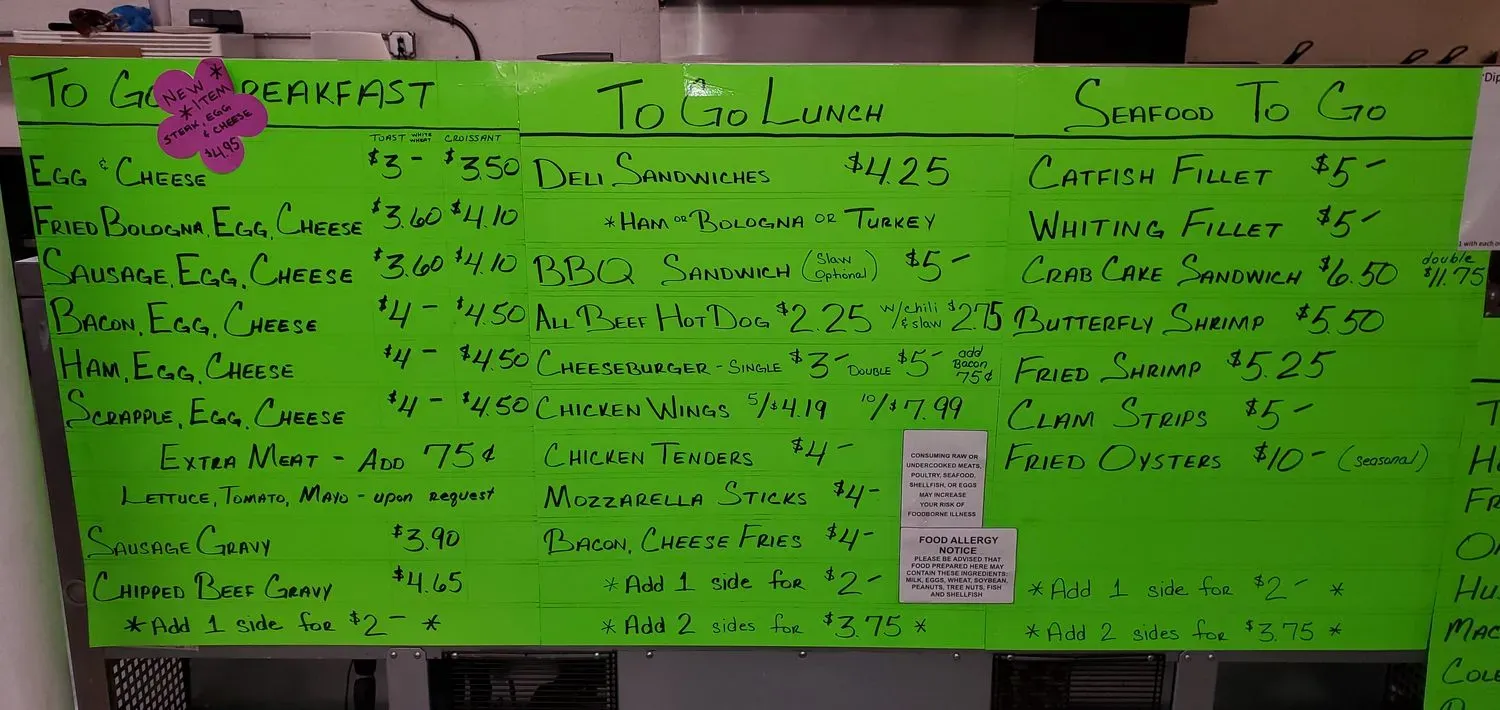 To Go Breakfast
NEW *
* ITEM
STEAK, EGG
& CHEESE
$4.95
TOAST WHITE WHEAT CROISSANT
Egg & Cheese $3- $3.50
Fried Bologna, Egg, Cheese $3.60 $4.10
Sausage, Egg, Cheese $3.60 $4.10
Bacon, Egg, Cheese $4- $4.50
Ham, Egg, Cheese $4- $4.50
Scrapple, Egg, Cheese $4- $4.50
Extra Meat - Add 75¢
Lettuce, Tomato, Mayo - upon request
Sausage Gravy $3.90
Chipped Beef Gravy $4.65
* Add 1 side for $2- *
To Go Lunch
Deli Sandwiches $4.25
* Ham or Bologna or Turkey
BBQ Sandwich (Slaw Optional) $5-
All Beef Hot Dog $2.25 w/chili & slaw $2.75
Cheeseburger - Single $3- Double $5- add Bacon 75¢
Chicken Wings 5/$4.19 10/$7.99
Chicken Tenders $4-
Mozzarella Sticks $4-
Bacon, Cheese Fries $4-
* Add 1 side for $2-
* Add 2 sides for $3.75 *
CONSUMING RAW OR
UNDERCOOKED MEATS,
POULTRY, SEAFOOD,
SHELLFISH, OR EGGS
MAY INCREASE
YOUR RISK OF
FOODBORNE ILLNESS
FOOD ALLERGY
NOTICE
PLEASE BE ADVISED THAT
FOOD PREPARED HERE MAY
CONTAIN THESE INGREDIENTS:
MILK, EGGS, WHEAT, SOYBEAN,
PEANUTS, TREE NUTS, FISH
AND SHELLFISH
Seafood To Go
Catfish Fillet $5-
Whiting Fillet $5-
Crab Cake Sandwich $6.50 double $11.75
Butterfly Shrimp $5.50
Fried Shrimp $5.25
Clam Strips $5-
Fried Oysters $10- (seasonal)
* Add 1 side for $2- *
* Add 2 sides for $3.75 *
1 with each